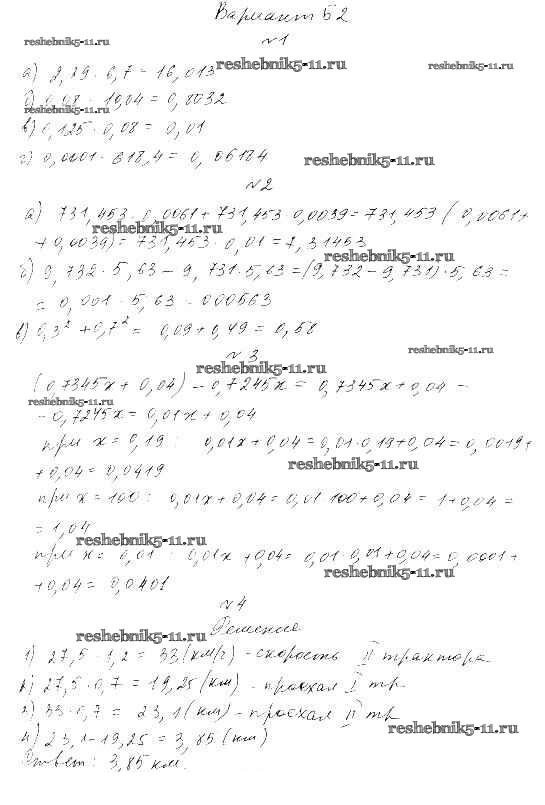 Вариант Б2
№1
reshebnik5-11.ru
reshebnik5-11.ru
reshebnik5-11.ru
а) 2,39 · 6,7 = 16,013
б) 0,08 · 10,04 = 0,8032
reshebnik5-11.ru
в) 0,125 · 0,08 = 0,01
г) 0,0001 · 618,4 = 0,06184
reshebnik5-11.ru
№2
а) 731,453 · 0,0061 + 731,453 · 0,0039 = 731,453 (0,0061 +
reshebnik5-11.ru
+ 0,0039) = 731,453 · 0,01 = 7,31453
reshebnik5-11.ru
б) 9,732 · 5,63 - 9,731 · 5,63 = (9,732 - 9,731) · 5,63 =
= 0,001 · 5,63 - 000563
в) 0,3² + 0,7² = 0,09 + 0,49 = 0,58
reshebnik5-11.ru
№3
reshebnik5-11.ru
(0,7345x + 0,04) - 0,7245x = 0,7345x + 0,04 -
reshebnik5-11.ru
- 0,7245x = 0,01x + 0,04
при x = 0,19 : 0,01x + 0,04 = 0,01 · 0,19 + 0,04 = 0,0019 +
reshebnik5-11.ru
+ 0,04 = 0,0419
при x = 100 : 0,01x + 0,04 = 0,01 100 + 0,04 = 1 + 0,04 =
= 1,04
reshebnik5-11.ru
при x = 0,01 : 0,01x + 0,04 = 0,01 · 0,01 + 0,04 = 0,0001 +
reshebnik5-11.ru
+ 0,04 = 0,0401
№4
reshebnik5-11.ru
Решение
1) 27,5 · 1,2 = 33 (км/ч) - скорость II трактора
2) 27,5 · 0,7 = 19,25 (км) - проехал I тр.
3) 33 · 0,7 = 23,1 (км) - проехал II тр
reshebnik5-11.ru
4) 23,1 - 19,25 = 3,85 (км)
Ответ: 3,85 км.